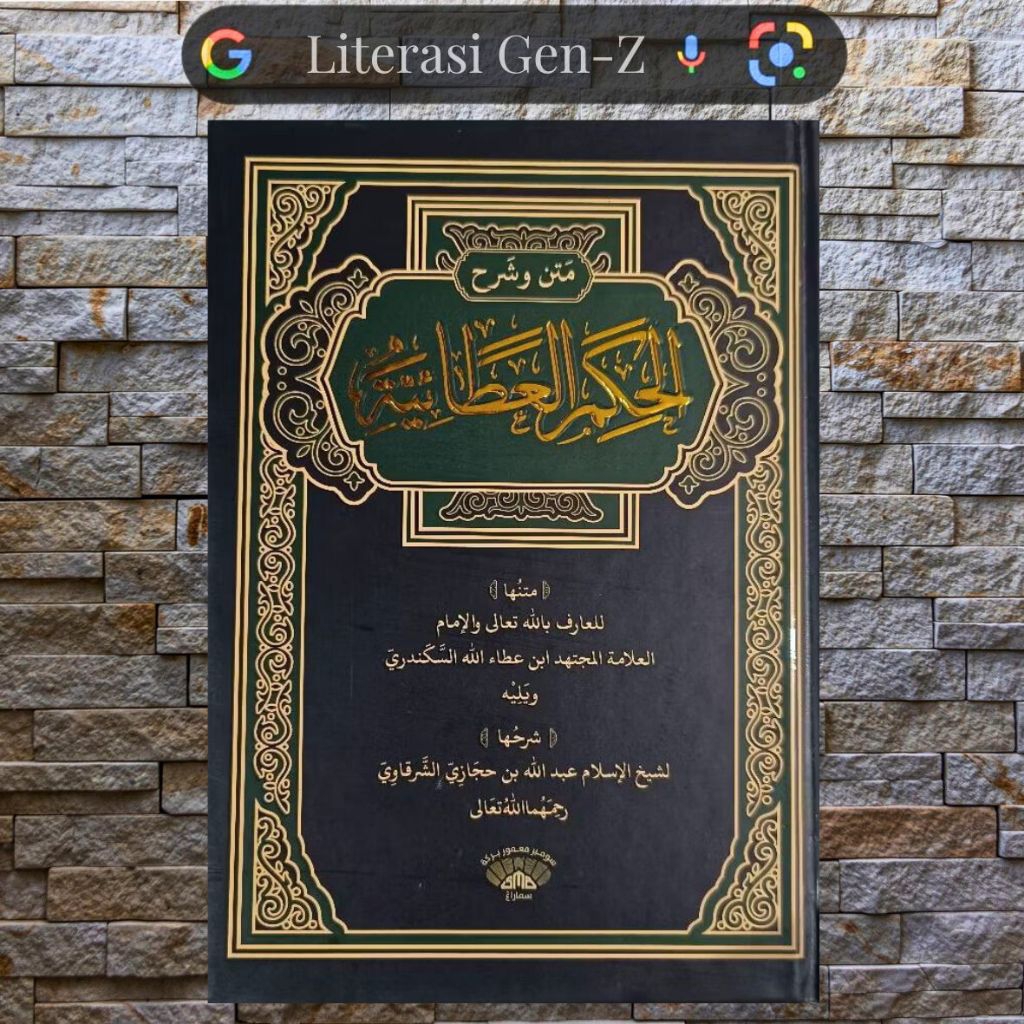 Literasi Gen-Z
مَتن وشَرح
الحِكَم العَطَائِيَّة
﴿ متنُها ﴾
للعارف بالله تعالى والإمام
العلامة المجتهد ابن عطاء الله السَّكَندريّ
ويَلِيْه
﴿ شرحُها ﴾
لشيخ الإسلام عبد الله بن حجَازِيّ الشَّرقاوِيّ
رحِمَهُما اللهُ تعَالى
سومبر معمور بركة
SMB
سماراغ